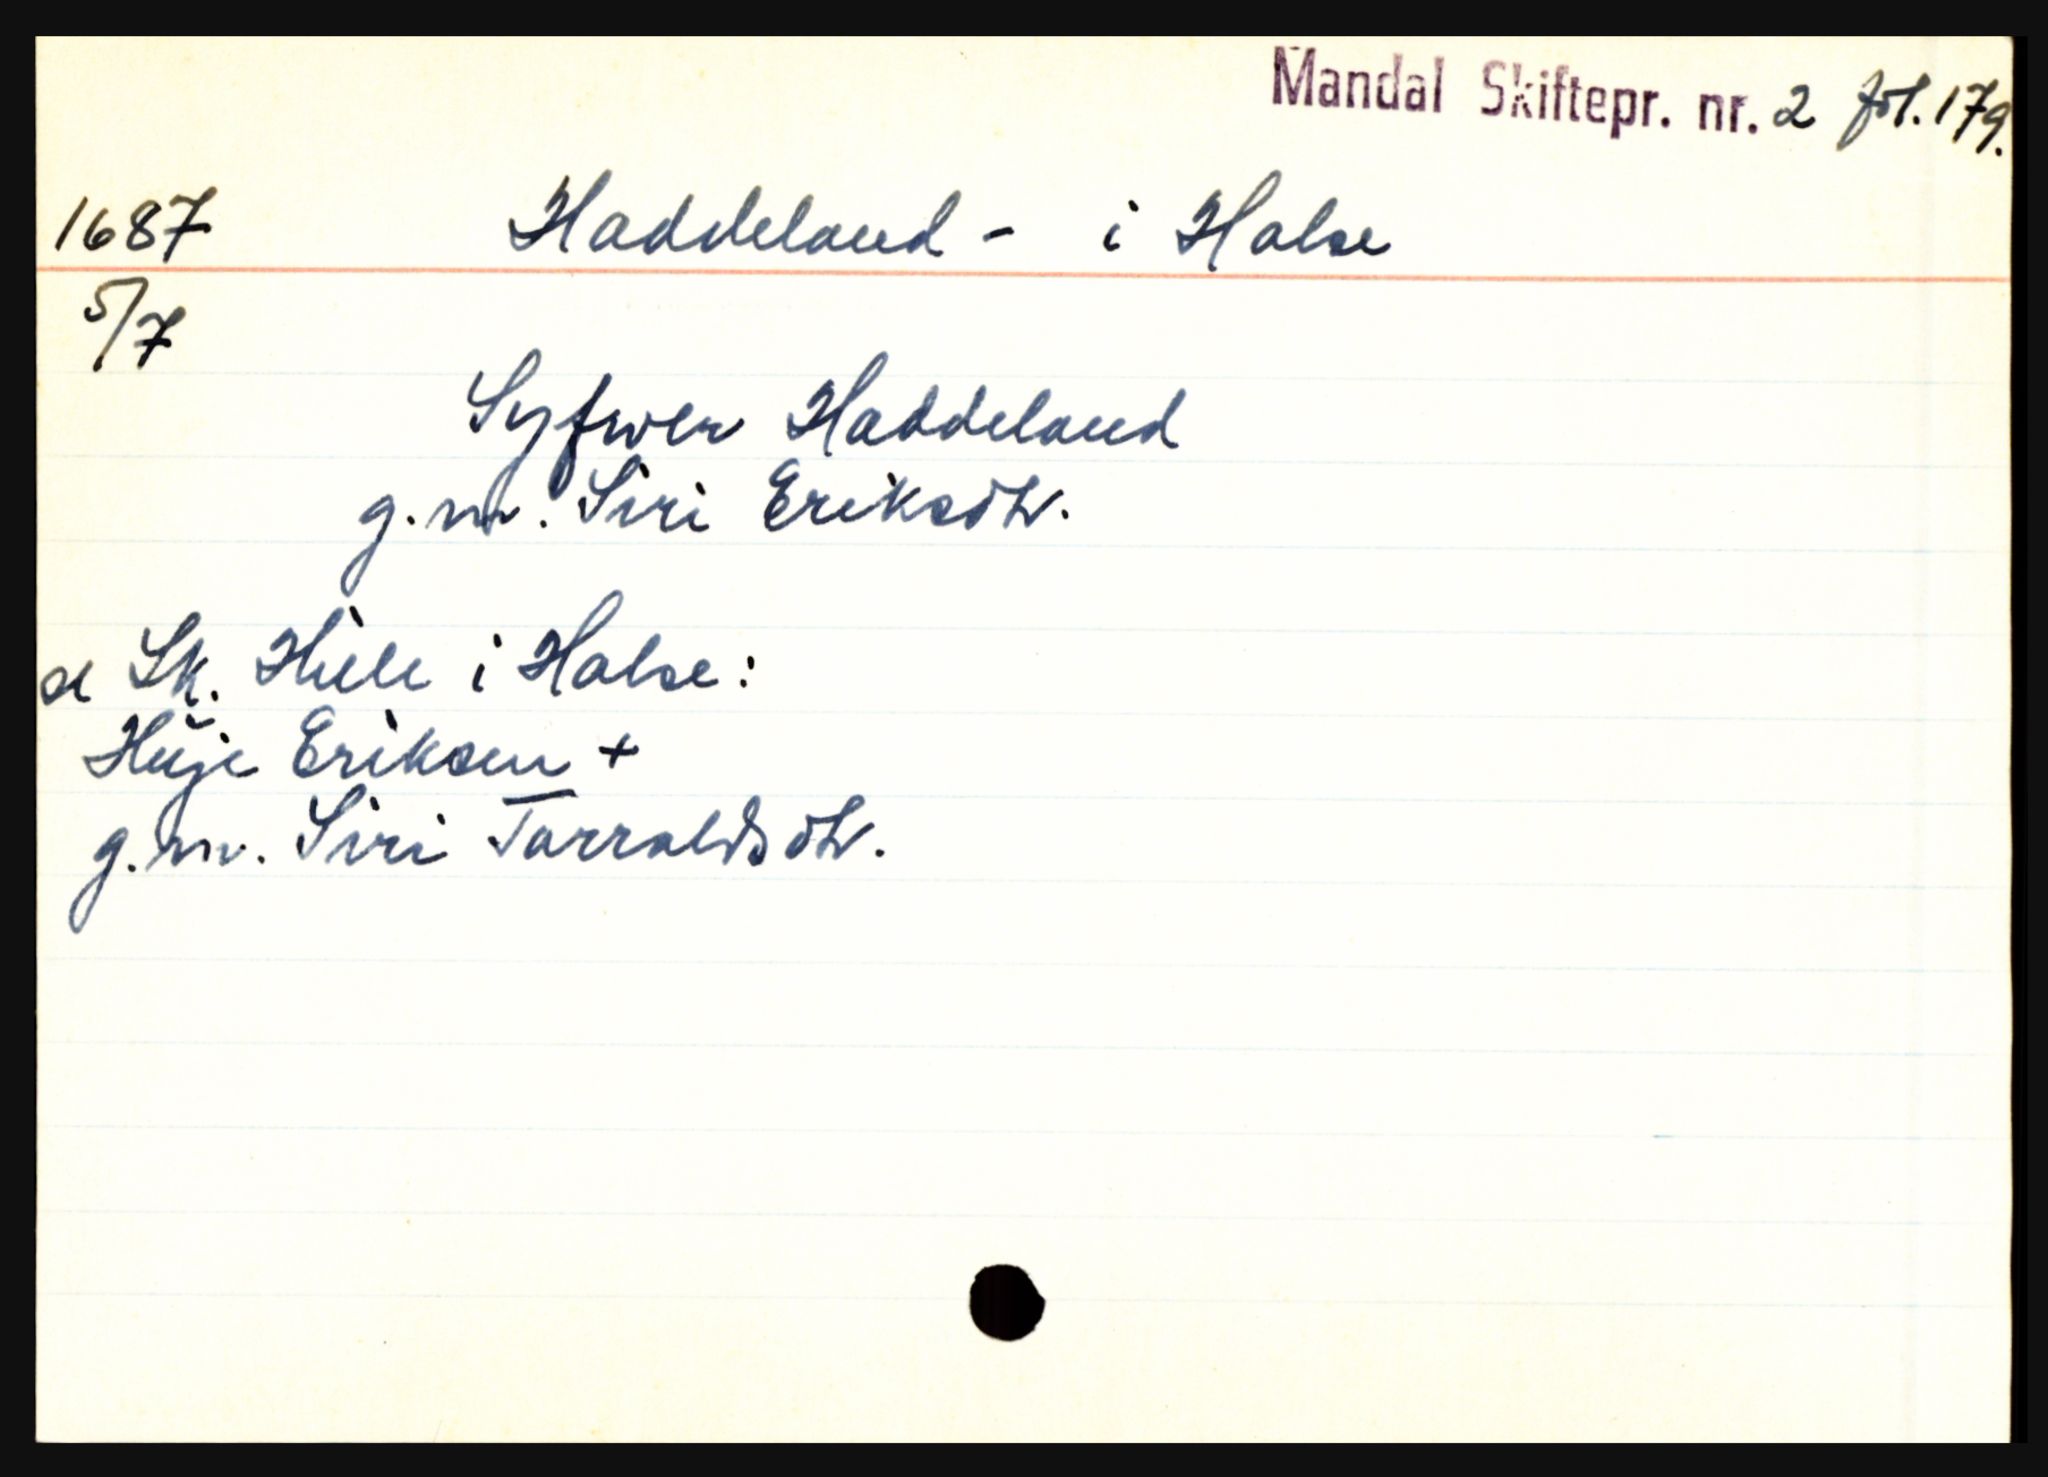 Mandal Skiftepr. nr. 2 fol. 179.
1687 Haddeland - i Halse
5/7
Syfwer Haddeland
g.m. Siri Eriksdtr.
Sk. Hille i Halse:
Huje Eriksen +
g.m. Siri Tarraldsdtr.